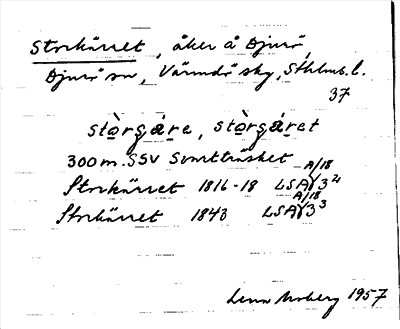 Storkärret, åker å Djurö,
Djurö sn, Värmdö skg, Sthlms l.
37
stòrgáre, stòrgáret
300 m. SSV Svartträsket
Storkärret 1816-18 LSA A/18 3²
Storkärret 1843 LSA A/18 3³
1957